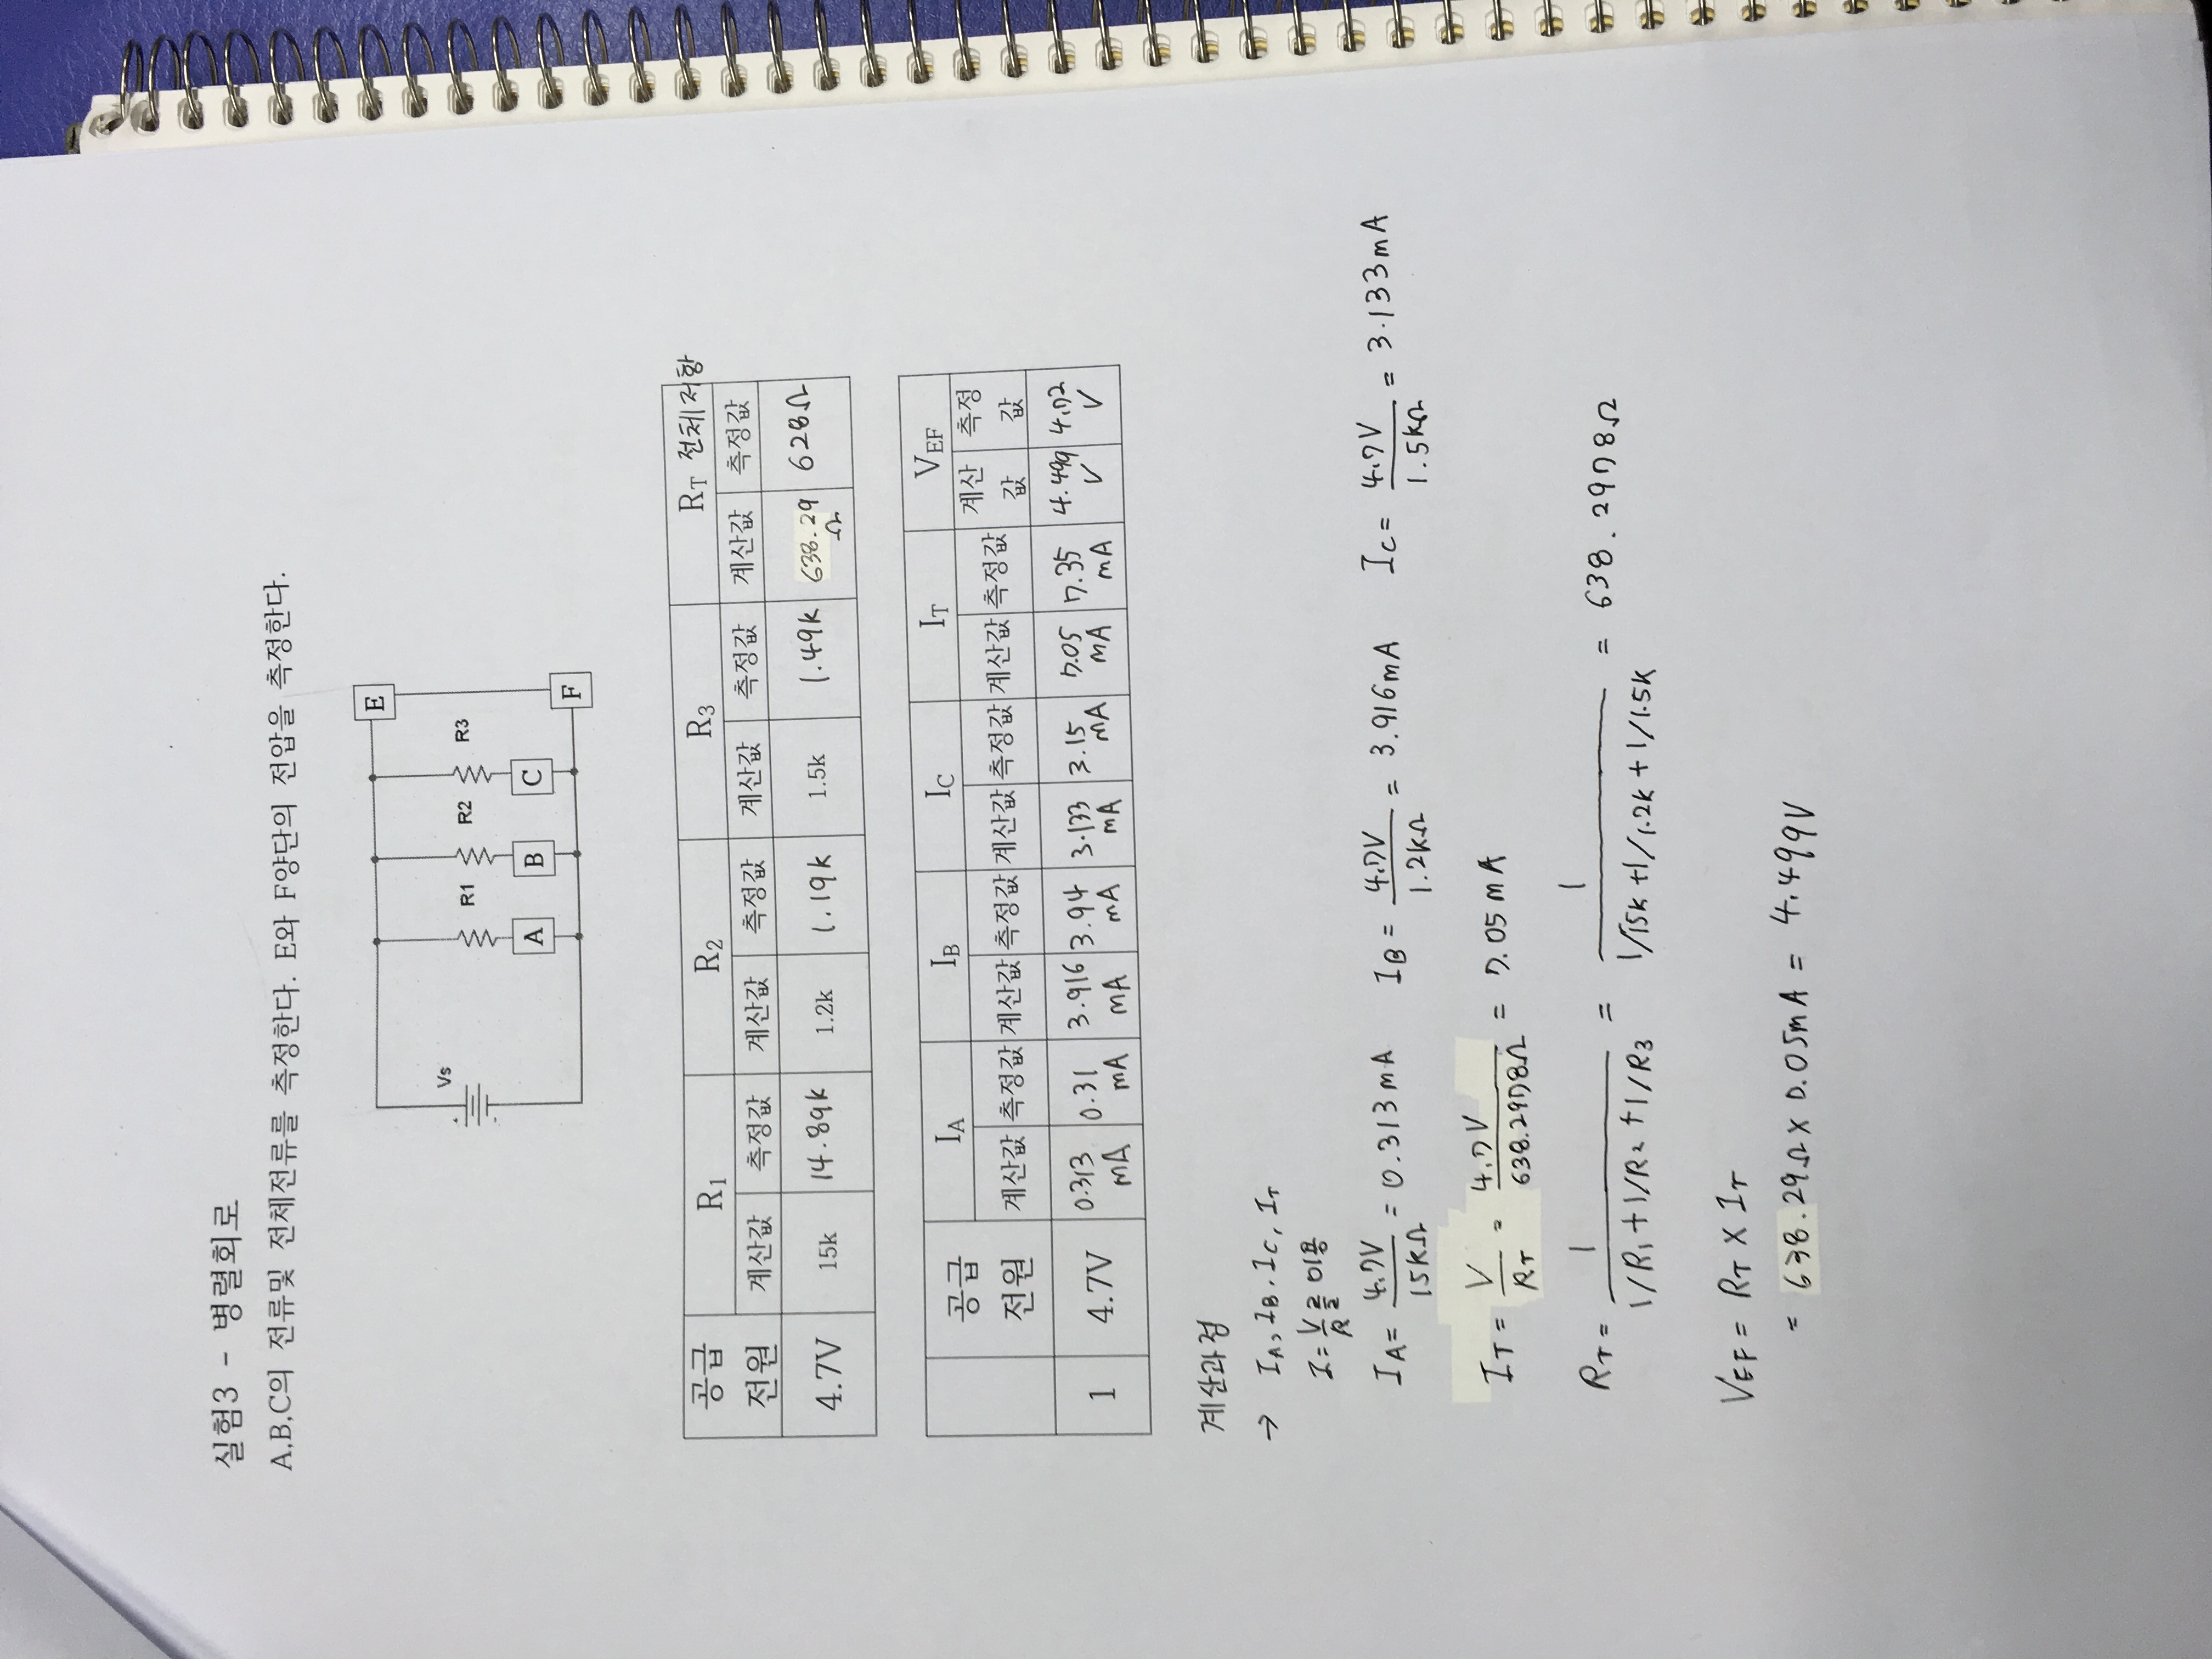 실험3 - 병렬회로
A,B,C의 전류및 전체전류를 측정한다. E와 F양단의 전압을 측정한다.
E
Vs
+
-
R1 R2 R3
A B C
F
공급 전원 R1 R2 R3 RT 전체저항
계산값 측정값 계산값 측정값 계산값 측정값 계산값 측정값
4.7V 15k 14.89k 1.2k 1.19k 1.5k 1.49k 638.29Ω 628Ω
공급 전원 IA IB IC IT VEF
계산값 측정값 계산값 측정값 계산값 측정값 계산값 측정값 계산값 측정값
1 4.7V 0.313mA 0.31mA 3.916mA 3.94mA 3.133mA 3.15mA 7.05mA 7.35mA 4.499V 4.72V
계산과정
→ IA, IB, IC, IT
I = V/R 를 이용
IA = 4.7V/15kΩ = 0.313mA IB = 4.7V/1.2kΩ = 3.916mA IC = 4.7V/1.5kΩ = 3.133mA
IT = V/RT = 4.7V/638.2978Ω = 7.05mA
RT = 1/(1/R1+1/R2+1/R3) = 1/(1/15k+1/1.2k+1/1.5k) = 638.2978Ω
VEF = RT X IT
= 638.29Ω X 7.05mA = 4.499V